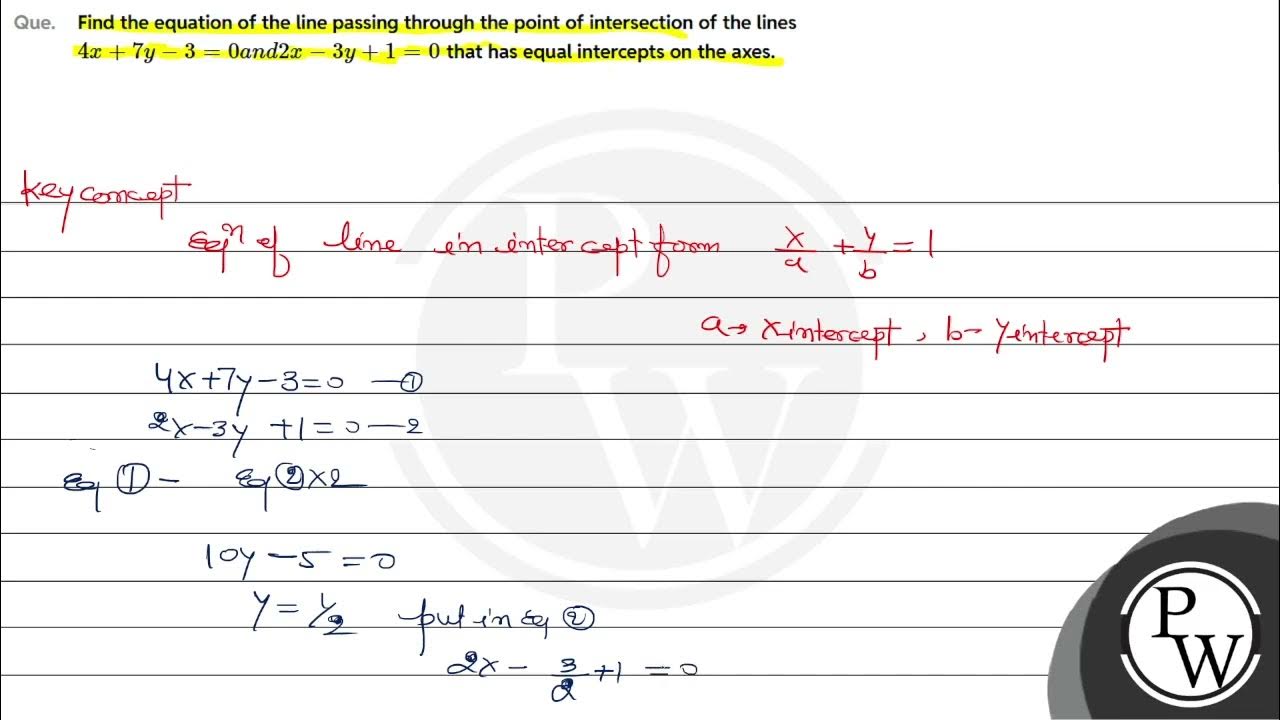 Que. Find the equation of the line passing through the point of intersection of the lines
4x + 7y − 3 = 0and2x − 3y + 1 = 0 that has equal intercepts on the axes.
Key concept
Eqⁿ of line in intercept form x/a + y/b = 1
a→ x intercept, b- y intercept
4x+7y-3=0 —①
2x-3y+1=0—2
Eq ① - Eq ②×2
10y-5=0
y=1/2 put in Eq ②
2x - 3/2 +1 =0
P
W
P
W